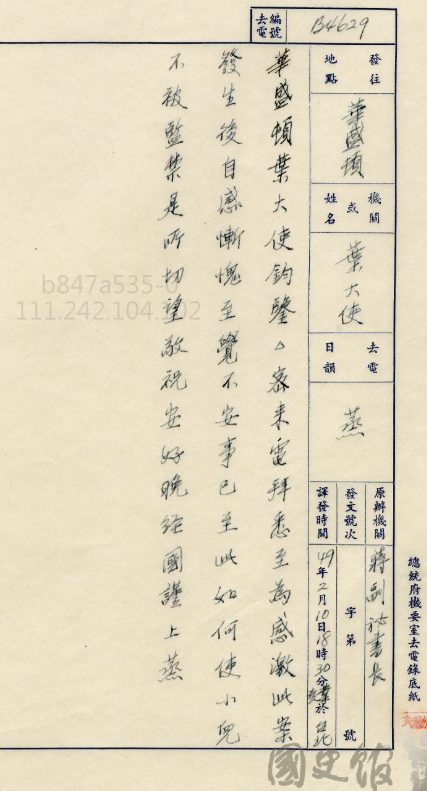 總統府機要室去電錄底紙
原辦機關
蔣副祕書長
發文號次
字第
號
譯發時間
49年2月10日18時30分
於台北
編號
去電
B4629
發往地點
華盛頓
機關或姓名
葉大使
去電日韻
蒸
華盛頓葉大使鈞鑒△密來電拜悉至為感激此案
發生後自感慚愧至覺不安事已至此如何使小兒
不被監禁是所切望敬祝安好晚經國謹上蒸
b847a535-0
111.242.104.102
國史館